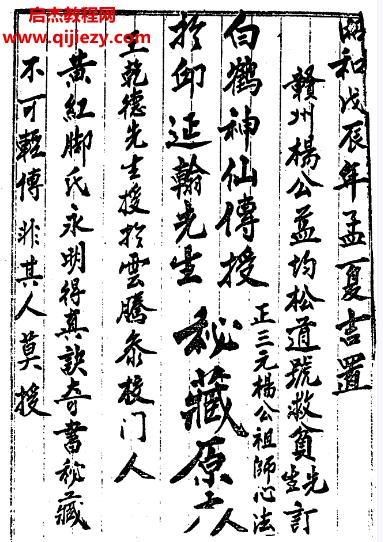 启杰教程网
www.qijiezy.com
昭和戊辰年孟夏吉置
贛州楊公益均松道號救貧先生訂
正三元楊公祖師心法
白鶴神仙傳授
於邱延翰先生 秘藏原本
王乾德先生授於雲騰參校门人
黃紅脚氏永明得真訣奇書秘藏
不可輕傳非其人莫授